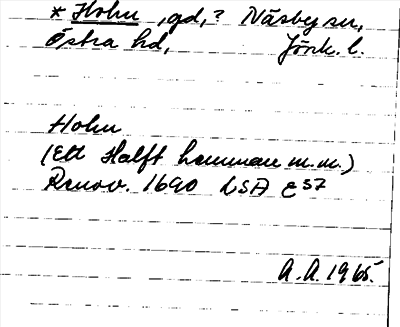 * Hohu, gd,? Näsby sn,
Östra hd, Jönk. l.
Hohu
(Ett Halft hemman m.m.)
Renov. 1690 LSA E 57
A.A. 1965.